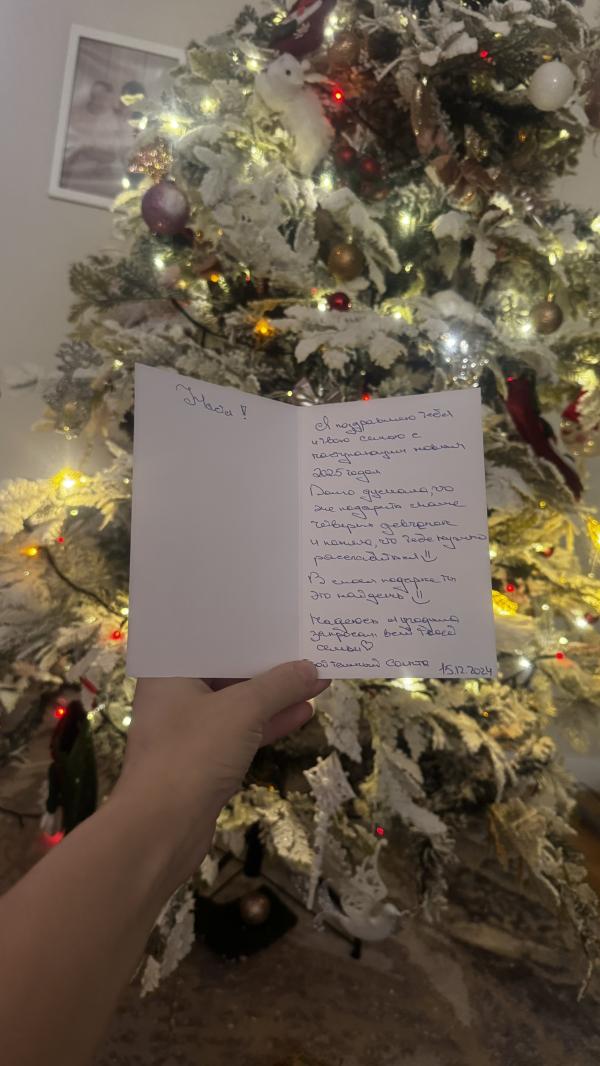 Я поздравляю тебя
и твою семью с
наступающим новым
2025 годом
Долго думала, что
же подарить маме
четверых девчонок
и поняла, что тебе нужно
расслабиться!!
В моем подарке ты
это найдешь !!
Надеюсь я угодила
запросам всей твоей
семьи♡
Санта 15.12.2024